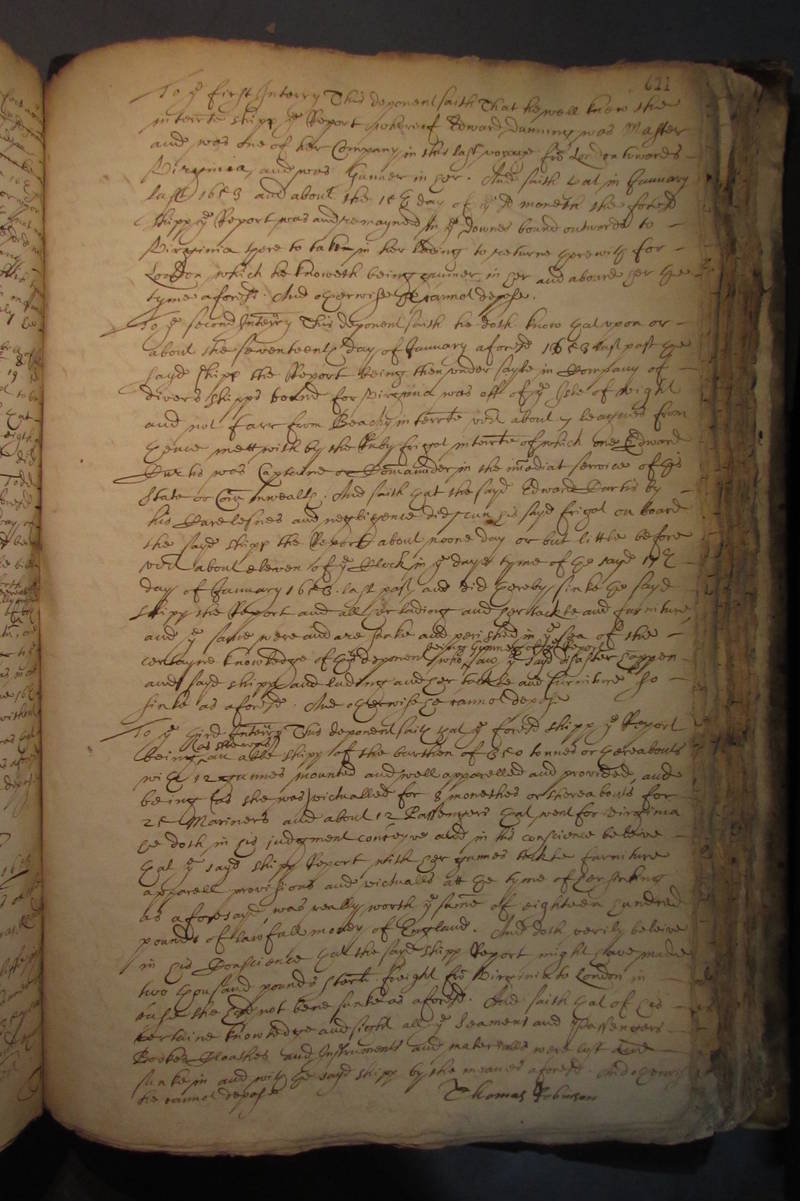 611
To ye first Interry This deponent saith That he well knew the
interrte shipp ye Report whereof Edward Dunning was Master
and was one of her Company in this last voyage frō London towards
Virginia, and was Gunner in her. And saith hat in January
last 1653 and about the 15th day of ye sd moneth the foresd
shipp ye Report was and remayned in ye Downes bound outwards to
Virginia there to take in her lading to returne herewith for
London, which he knoweth being gunner in her and aboard her the
tyme aforesd. And otherwise he cannot depose.
To ye second Interry This deponent saith he doth know hat upon or
about the seventeenth day of January aforesd 1653 last past the
sayd shipp the Report being then under sayle in Company of
divers shipps bound for Virginia was off of ye Isle of Wight
and not farr from Beachy interrte vizt about 7 leagues from
hence mett with by the Ruby frigot interrte of which one Edward
was Captaine or Comaunder in the imediat service of this
State or Comonwealth. And saith hat the sayd Edward by
his Carelesnes and negligence did run his sayd frigot on board
the sayd shipp the Report about noone day or but little before
vizt about eleven of ye Clock in ye daye tyme of the sayd 17th
day of January 1653 last past, and did thereby sinke the sayd
shipp the Report and all her lading and her tackle and furniture
and ye same were and are sunke and perished in ye sea of the
certayne knowledge of this deponent being Gunner of the Report who saw ye sayd disaster happen
and sayd shipp and lading and her tackle and furniture so
sinke as aforesd. And otherwise he cannot depose
To ye third Interry This deponent saith hat ye foresd shipp ye Report
being (as she was) an able shipp of the burthen of 350 tonnes or thereabouts
with 12 gunnes mounted and well apparelled and provided, and
being (as she was) victualled for 8 monethes or thereabouts for
25 Mariners and about 12 Passengers hat went for Virginia
he doth in his judgment conceyve and in his conscience beleeve
hat ye sayd shipp Report with her gunnes tackle furniture
apparell provisions and victualls att the tyme of her sinking
as aforesayd was really worth ye summe of eighteen hundred
pounds of lawfull money of England. And doth verily beleive
in his Conscience hat the sayd shipp Report might have made
two thousand pounds sterl. freight frō Virginia to London in
case she had not bene sunke as aforesd. And saith hat of his
certaine knowledge and sight all ye Seamens and Passengers
Bookes Cloathes and Instruments and materialls were lost and
sunke in and with the sayd shipp by the meanes aforesd. And otherwise
he cannot depose
Thomas Robinson